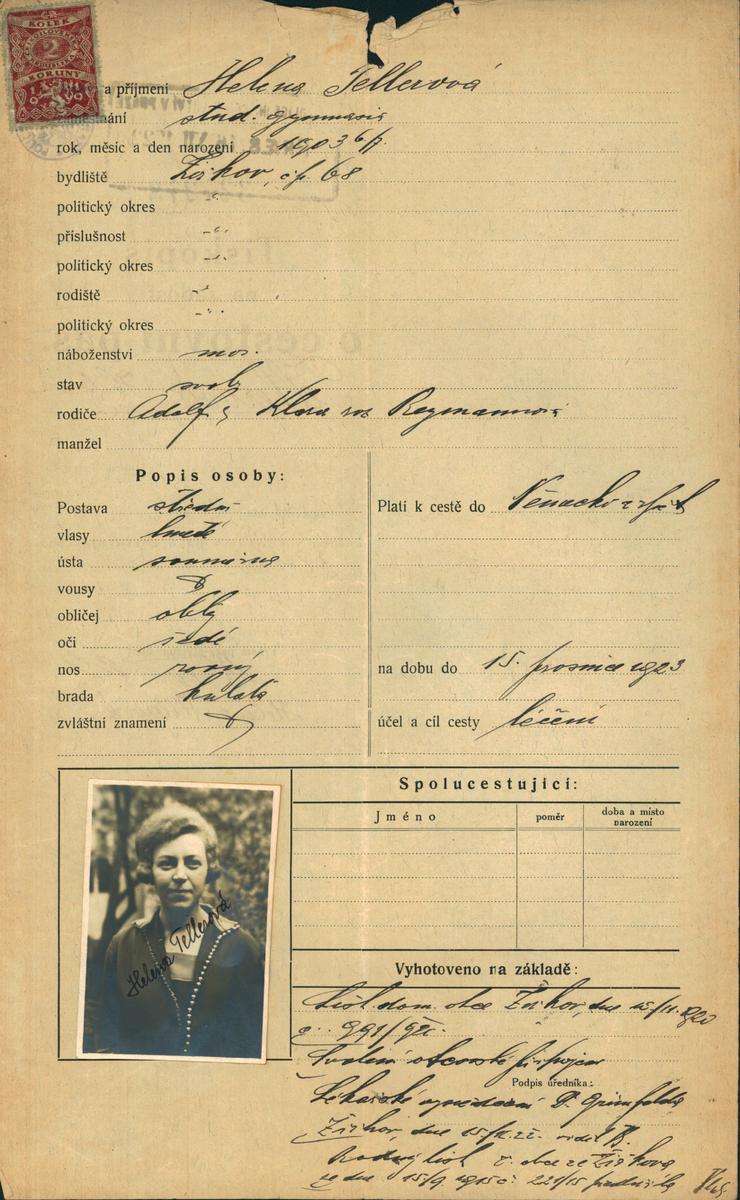 KOLEK
2
KORUNY
a příjmení Helena Tellerová
zaměstnání stud. gymnasia
rok, měsíc a den narození 1903 6/7
bydliště Žižkov, čp. 68
politický okres -"-
příslušnost -"-
politický okres -"-
rodiště -"-
politický okres -"-
náboženství mos.
stav svob.
rodiče Adolf a Klara roz.
manžel
Popis osoby:
Postava střední
vlasy hnědé
ústa souměrná
vousy
obličej oblý
oči šedé
nos rovný
brada kulatá
zvláštní znamení
Platí k cestě do Německo a zpět
na dobu do 15. prosince 1923
účel a cíl cesty léčení
Helena Tellerová
Spolucestující:
Jméno
poměr
doba a místo
narození
Vyhotoveno na základě:
dom. obce Žižkov, dne
991/
Podpis úředníka:
Lékařské vysvědčení Dr. Grünfelda
Žižkov, dne
Rodný list obce Žižkova
ze dne 15/9 1915 č. 221/15